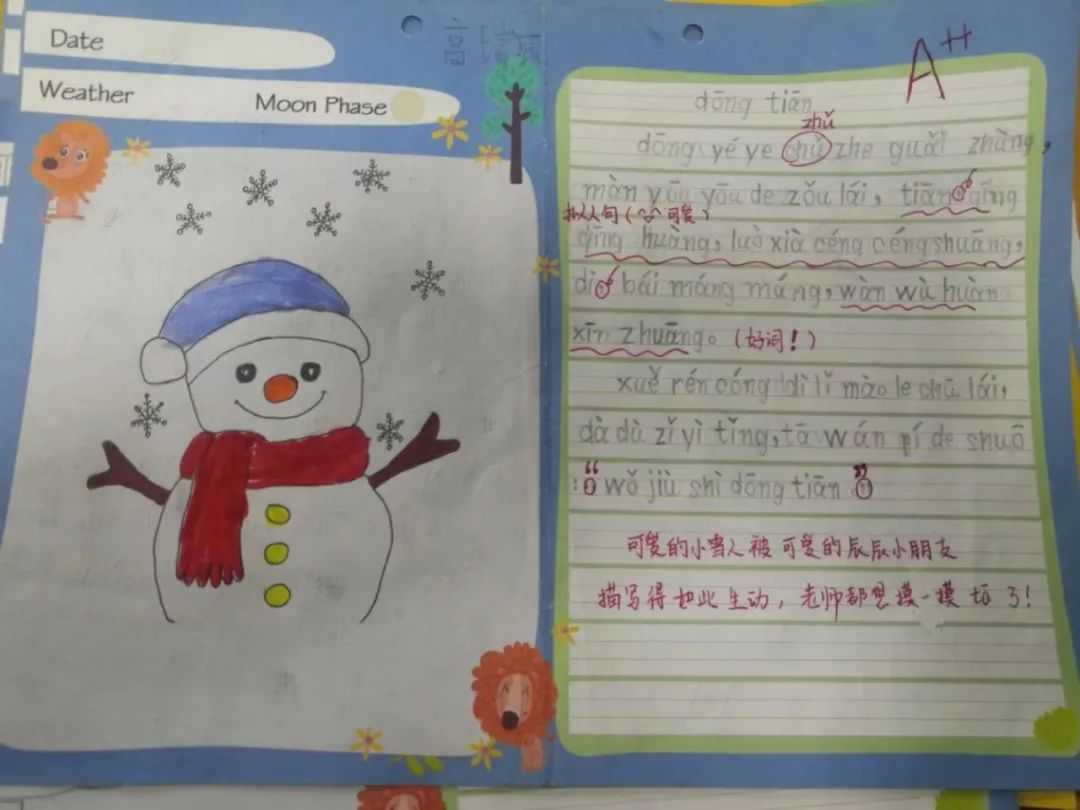 Date
Weather
Moon Phase
高瑞辰
A++
dōng tiān
zhǔ
dōng yé ye chǔ zhe guǎi zhàng,
màn yōu yōu de zǒu lái, tiān qīng
拟人句(可爱)
qīng huàng, luò xià céng céng shuāng,
dì bái máng máng, wàn wù huàn
xīn zhuāng。(好词!)
xuě rén cóng dì lǐ mào le chū lái,
dà dù zǐ yì tǐng, tā wán pí de shuō
:“wǒ jiù shì dōng tiān”
可爱的小雪人被可爱的辰辰小朋友
描写得如此生动,老师都想摸一摸它了!